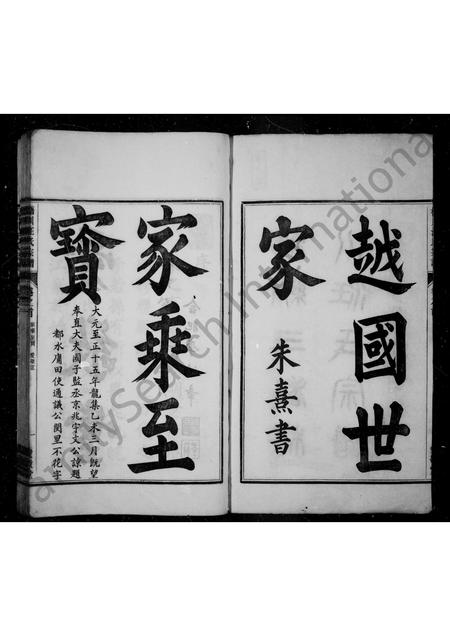 越國世
家
朱熹書
家乘至
寶
大元至正十五年龍集乙未三月既望
奉直大夫國子監丞京兆宇文公諒題
都水庸田使通議公閱里不花字
卷首
FamilySearch International